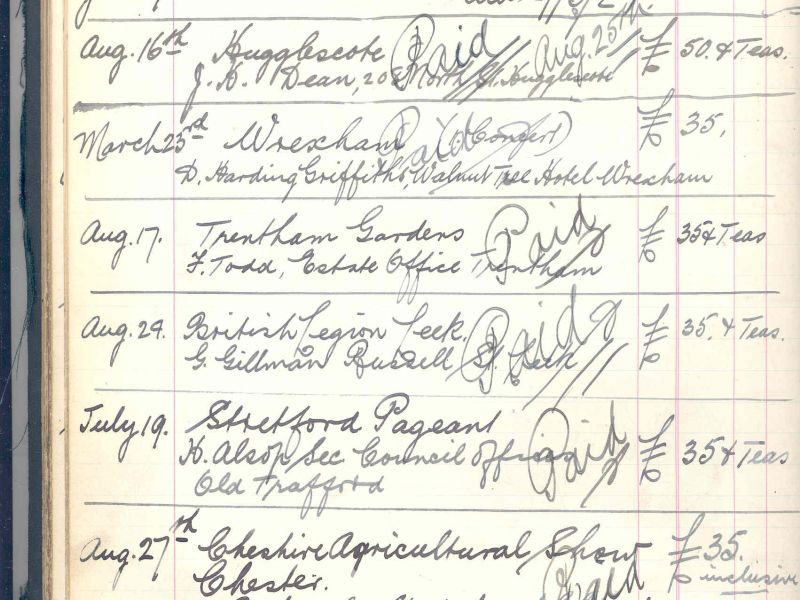 Aug. 16th Hugglescote Paid Aug. 25th. £ 50. & Teas.
J. H. Dean, 20 North St. Hugglescote
March 23rd Wrexham Paid (Concert) £ 35.
D. Harding Griffiths, Walnut Tree Hotel Wrexham
Aug. 17. Trentham Gardens Paid £ 35 & Teas
F. Todd, Estate Office Trentham
Aug. 29. British Legion Leek. Paid £ 35. & Teas.
G. Gillman Russell St. Leek
July 19. Stretford Pageant
H. Alsop Sec Council Offices Paid £ 35 & Teas
Old Trafford
Aug. 27th Cheshire Agricultural Show £ 35.
Chester. Paid inclusive